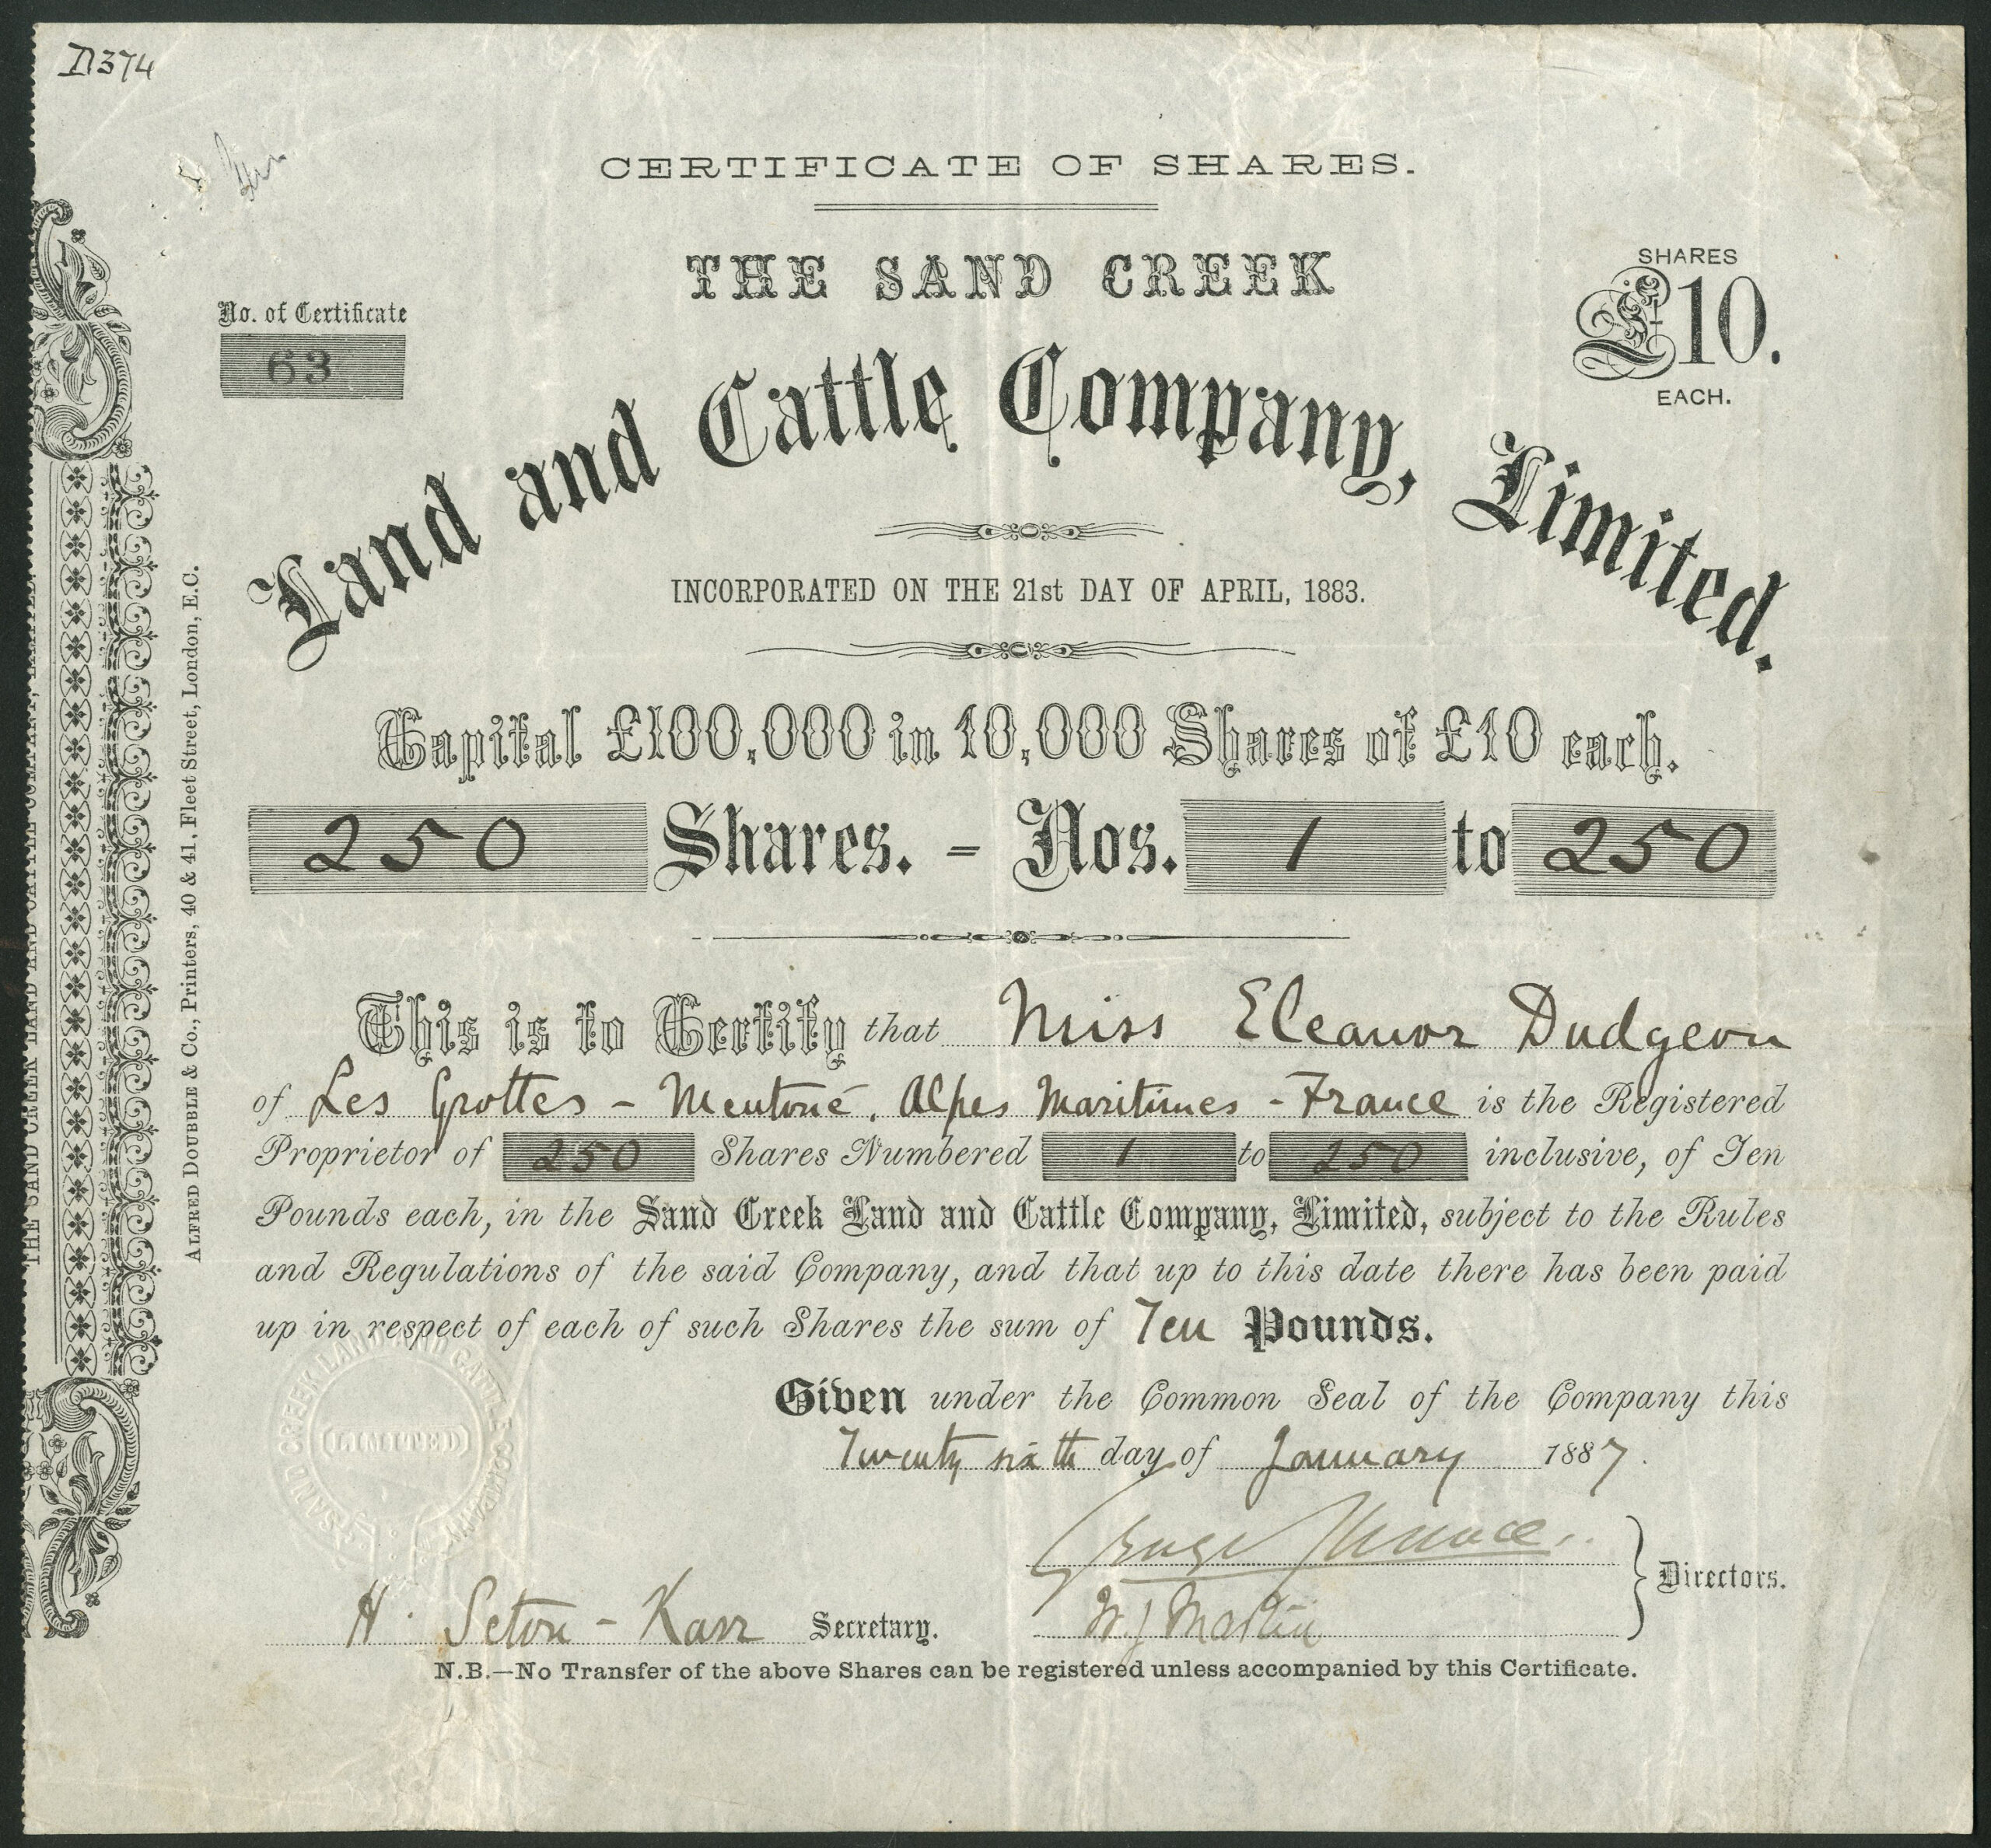 D374
CERTIFICATE OF SHARES.
THE SAND CREEK
SHARES
£10.
EACH.
No. of Certificate
63
Land and Cattle Company, Limited.
INCORPORATED ON THE 21st DAY OF APRIL, 1883.
Capital £100,000 in 10,000 Shares of £10 each.
250 Shares. - Nos. 1 to 250
This is to Certify that Miss Eleanor Dudgeon
of Les Grottes - Mentone, Alpes Maritimes - France is the Registered
Proprietor of 250 Shares Numbered 1 to 250 inclusive, of Ten
Pounds each, in the Sand Creek Land and Cattle Company, Limited, subject to the Rules
and Regulations of the said Company, and that up to this date there has been paid
up in respect of each of such Shares the sum of Ten Pounds.
Given under the Common Seal of the Company this
Twenty sixth day of January 1887.
George
W. J. Martin
Directors.
H. Seton-Karr Secretary.
N.B.—No Transfer of the above Shares can be registered unless accompanied by this Certificate.
SAND CREEK LAND AND CATTLE COMPANY
LIMITED
ALFRED DOUBBLE & Co., Printers, 40 & 41, Fleet Street, London, E.C.
THE SAND CREEK LAND AND CATTLE COMPANY, LIMITED.